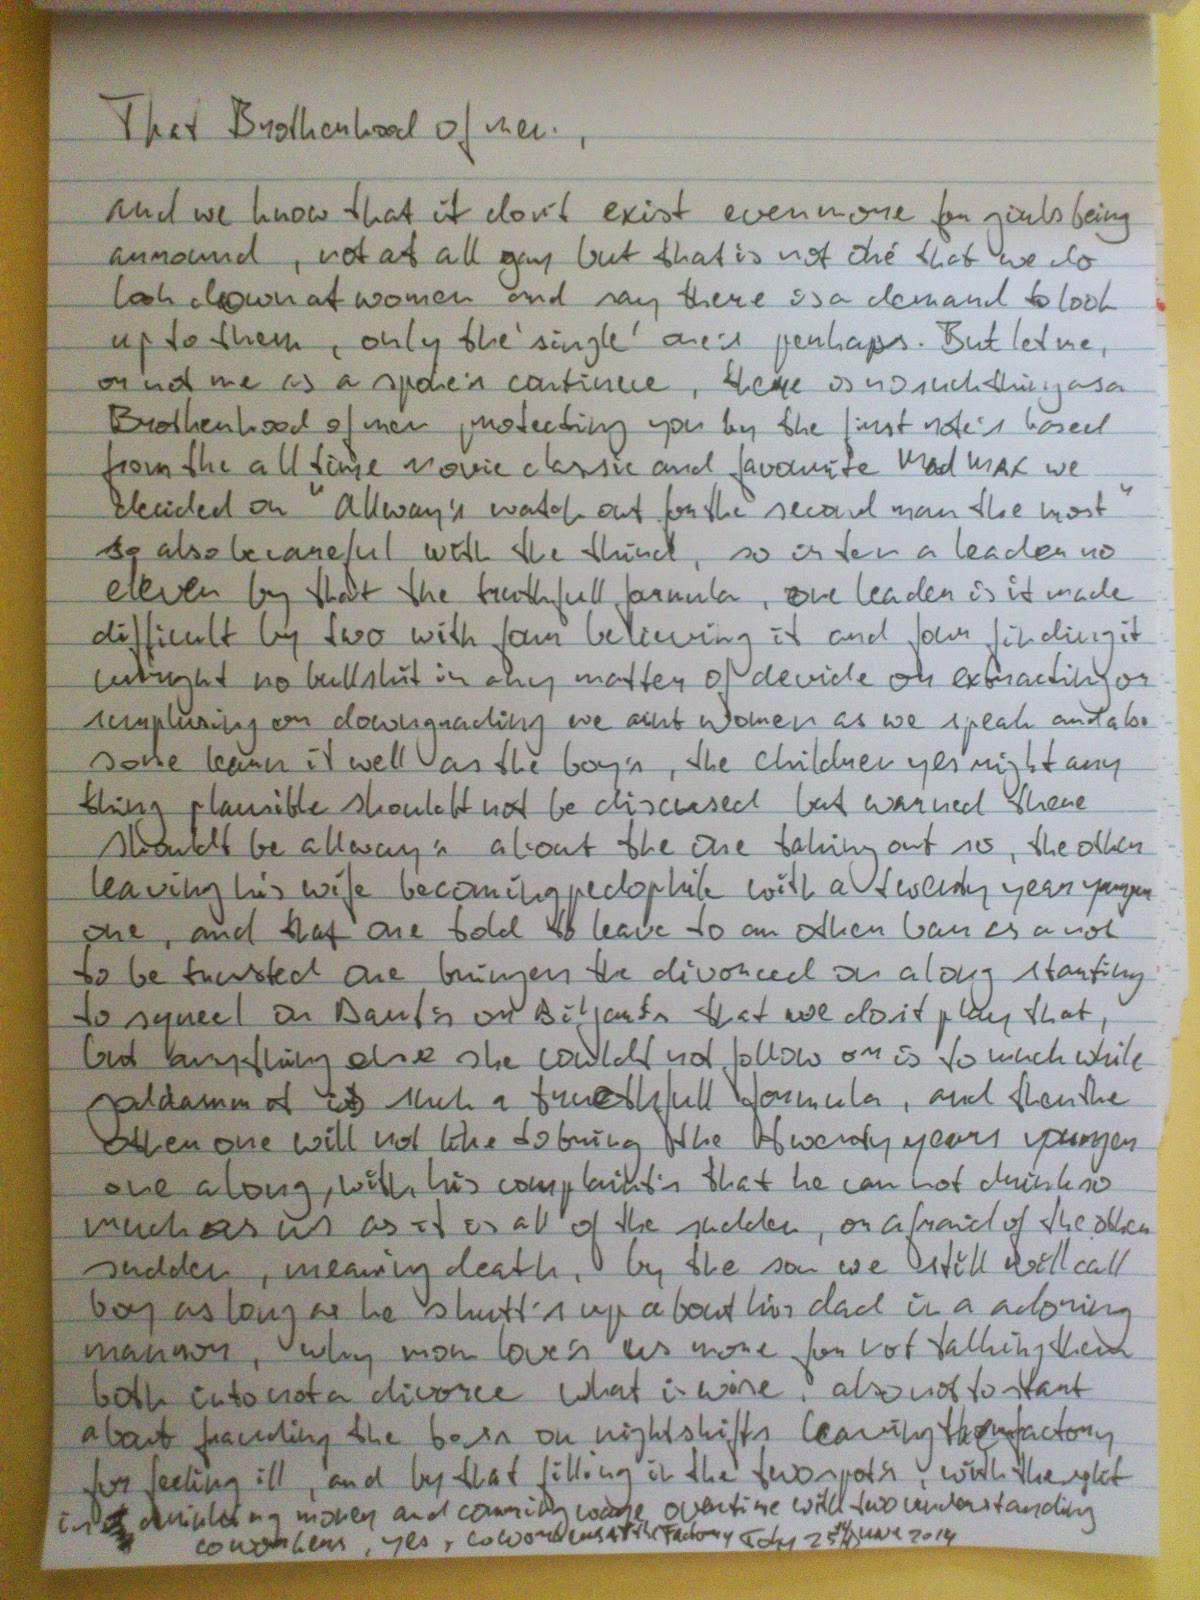 That Brotherhood of men.,
and we know that it don't exist evenmore for girls being
arround, not at all gay but that is not one that we do
look down at women and say there is a demand to look
up to them, only the 'single' one's perhaps. But let me,
or not me as a spoke's continue, there is no such thing as a
Brotherhood of men protecting you by the first note's based
from the all time movie classic and favourite Mad Max we
decided on "Allway's watch out for the second man the most"
so also be careful with the third, so is ten a leader no
eleven by that the truthfull formula, one leader is it made
difficult by two with four believing it and four finding it
unright no bullshit in any matter of devide or extracting or
surplusing or downgrading we aint women as we speak and also
some learn it well as the boy's, the children yes right any
thing plausible shouldt not be discused but warned there
shouldt be allway's about the one taking out so, the other
leaving his wife becoming pedophile with a twenty year younger
one, and that one told to leave to an other bar as a not
to be trusted one bringer the divorced or along starting
to squeel on Dart's or Biljart's that we dosit play that,
but anything else she couldt not follow or is to much while
goddamm ot is such a truethfull formula, and then the
other one will not like to bring the twenty years younger
one along, with his complaint's that he can not drink so
much as us as it is all of the sudden, or afraid of the other
sudden, meaning death, by the son we still will call
boy as long as he shutt's up about his dad in a adoring
mannor, why mom love's us more for not talking them
both into not a divorce what is wise. also not to start
about frauding the boss on nightshifts leaving the factory
for feeling ill, and by that filling in the two spots, with the right
in drinking money and earning wage overtime with two understanding
coworkers, yes, coworkers at the Factory 25th June 2014